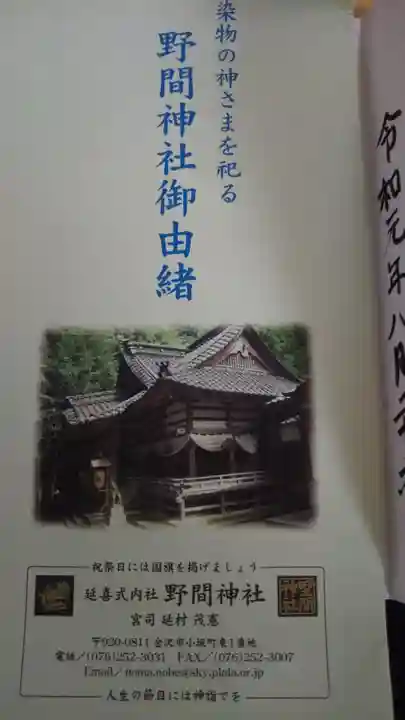 染物の神さまを祀る
野間神社御由緒
令和元年八月
祝祭日には国旗を掲げましょう
延喜式内社 野間神社
宮司 延村 茂憲
〒920-0811 金沢市小坂町東1番地
電話/(076)252-3031 FAX/(076)252-3007
人生の節目には神詣でを